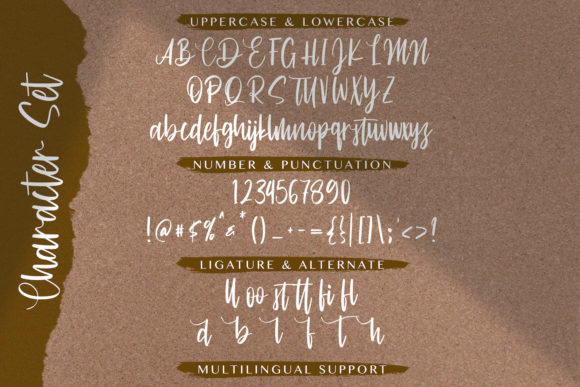 Character Set
UPPERCASE & LOWERCASE
ABCDEFGHIJKLMN
OPQRSTUVWXYZ
abcdefghijklmnopqrstuvwxyz
NUMBER & PUNCTUATION
1234567890
!@#$%^&*()_+-={}|[]\;'<>!
LIGATURE & ALTERNATE
ll oo st tt fi fl
d b l f t h
MULTILINGUAL SUPPORT